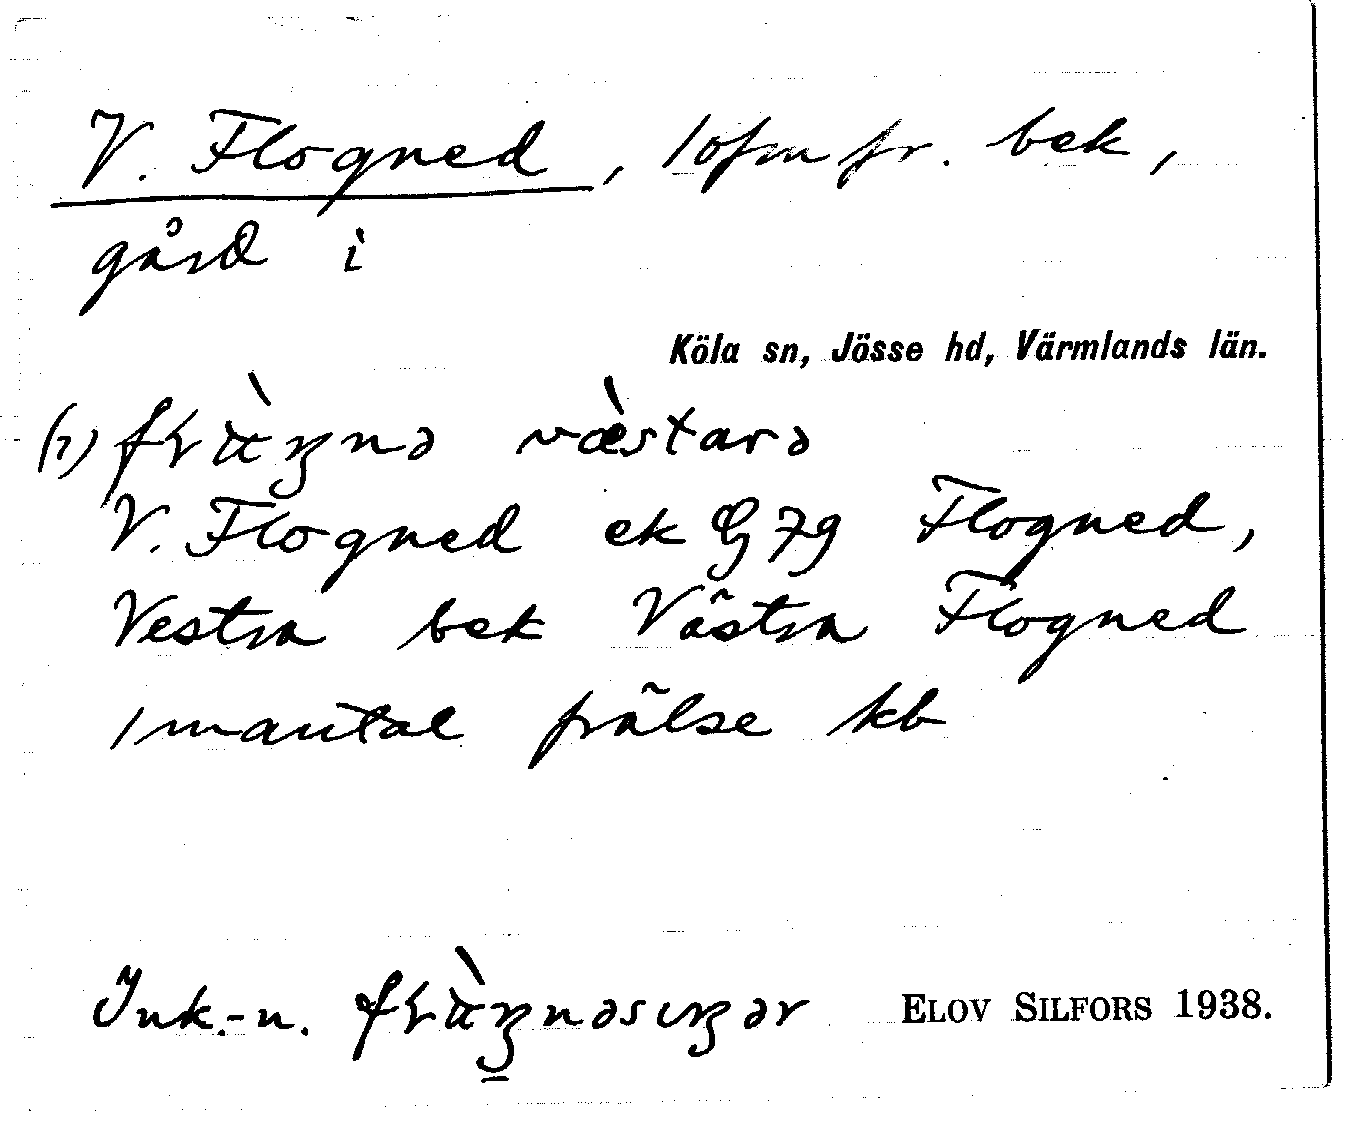 V. Flogned, 1 ofm fr. bek,
gård i
Köla sn, Jösse hd, Värmlands län.
(1)
V. Flogned ek G 79 Flogned,
Vestra bek Västra Flogned
1 mantal frälse kb
Ink.-n.
ELOV SILFORS 1938.